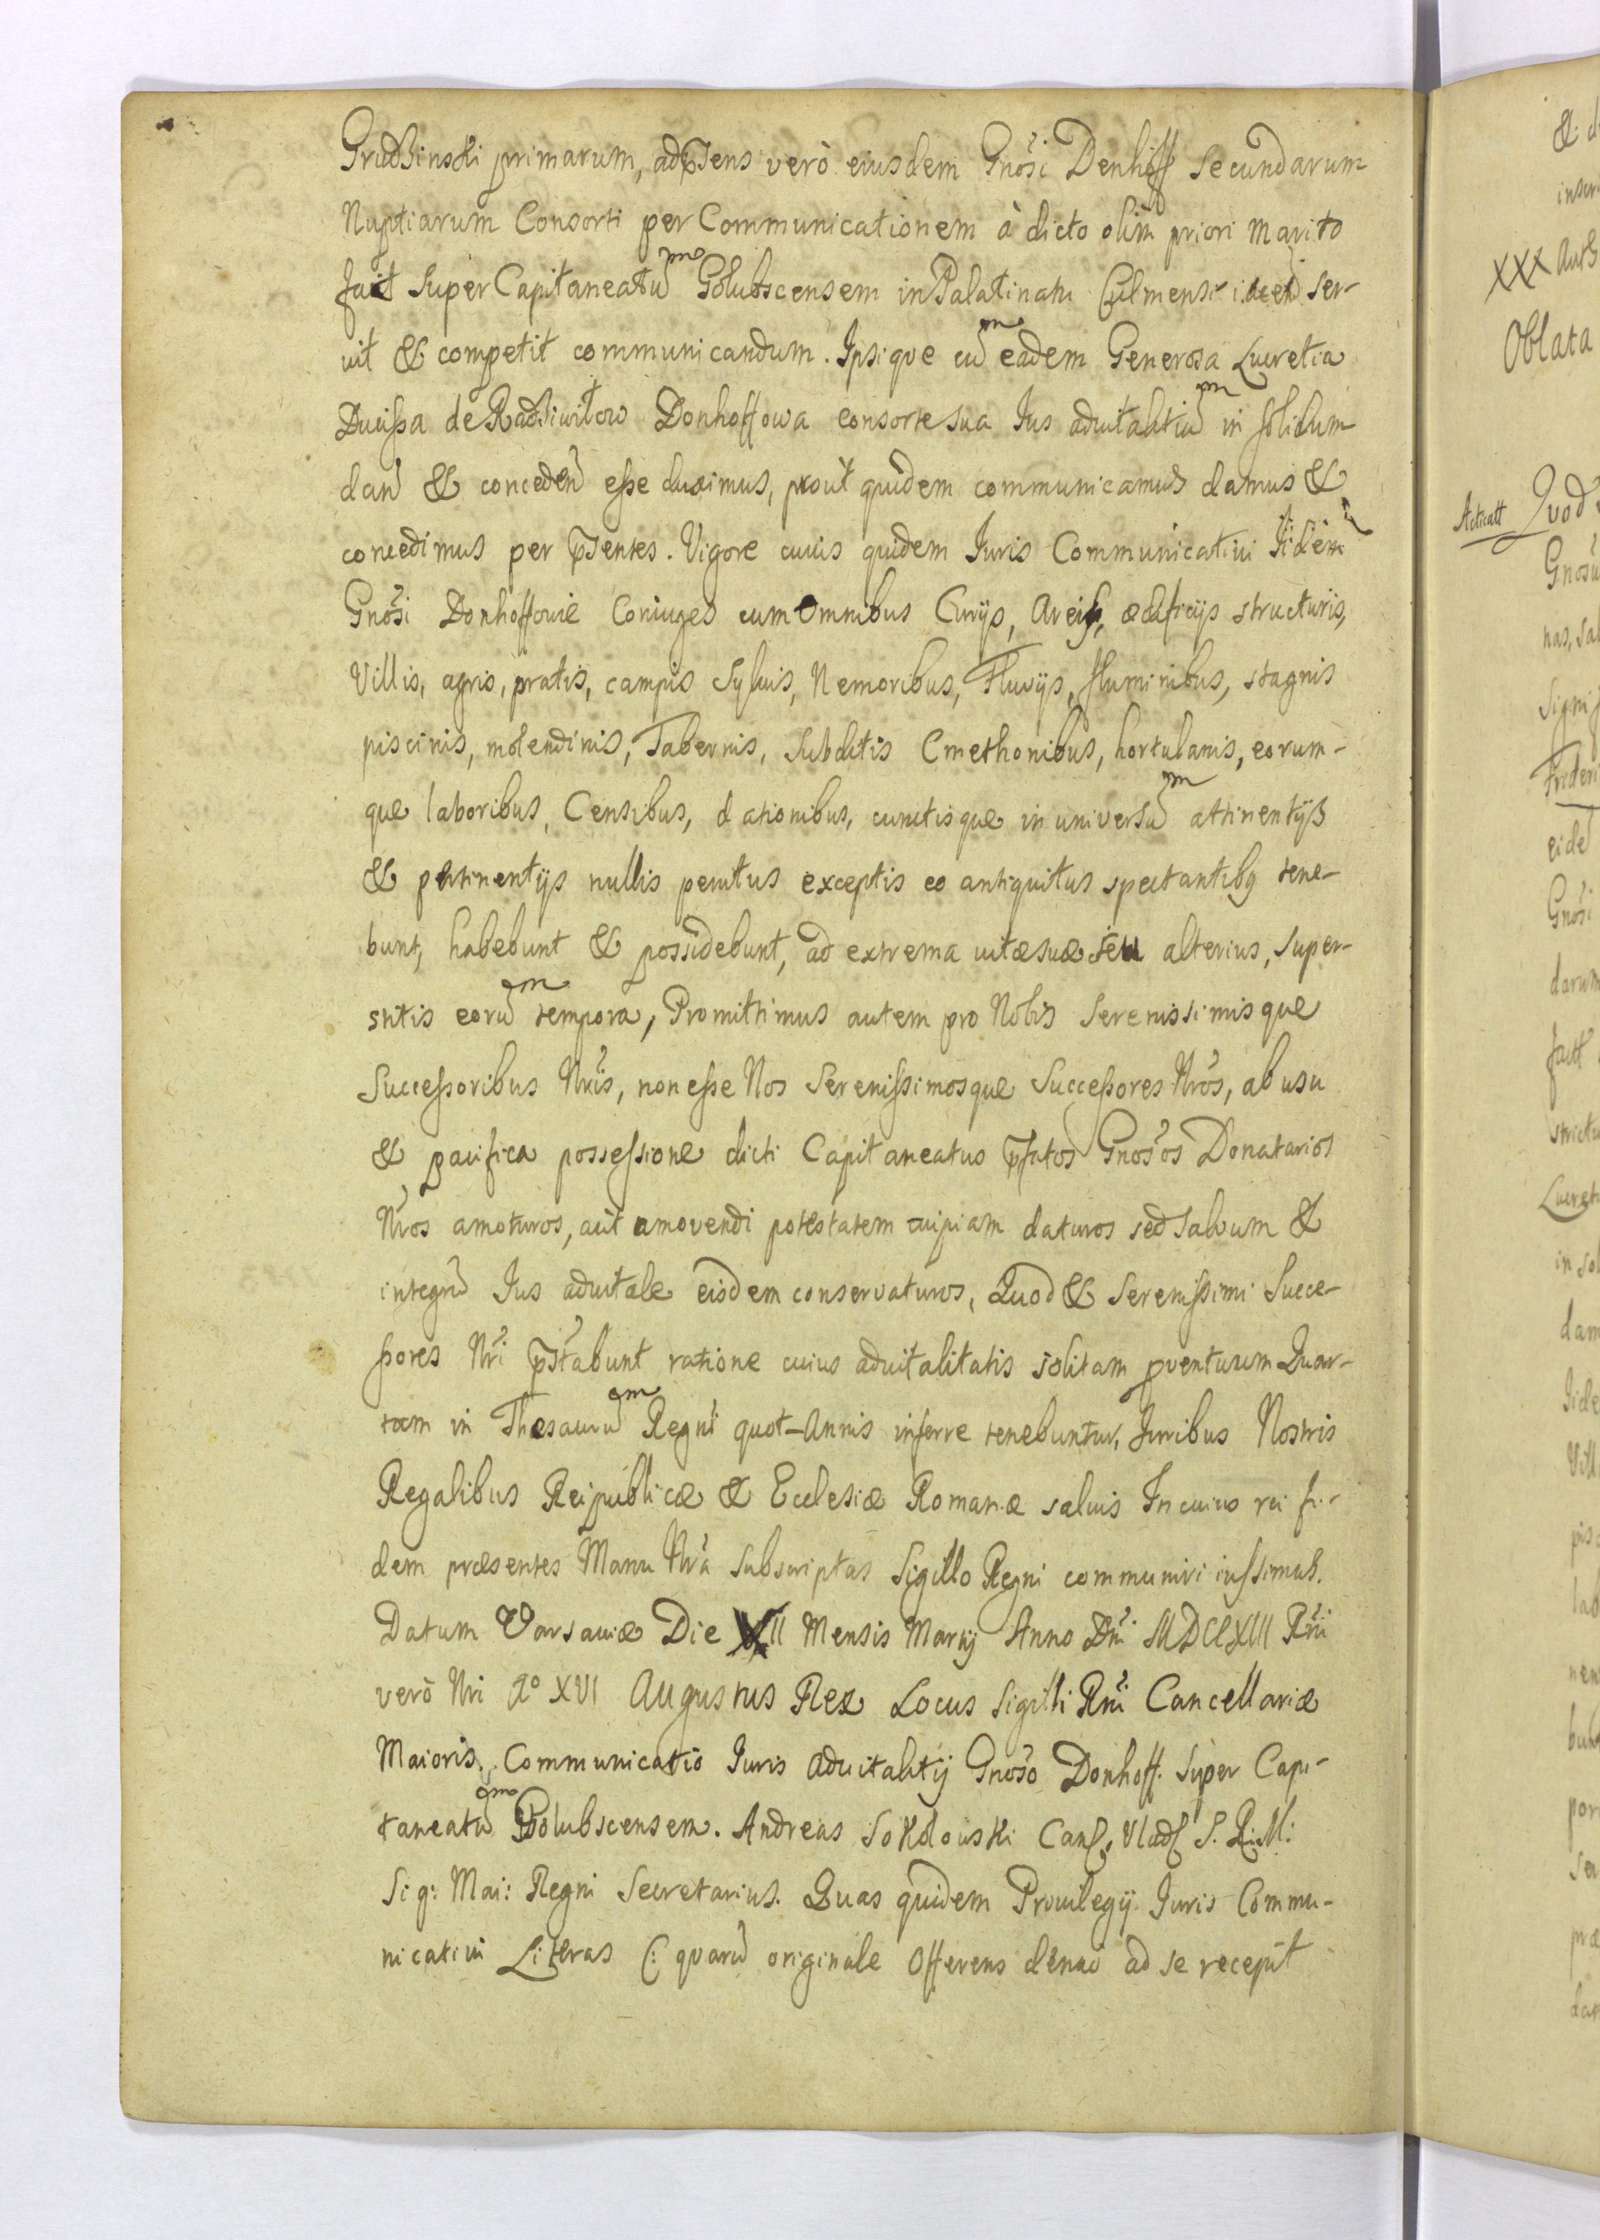 Grudzinski primarum, adpsens verò eiusdem Gnosi Denhoff secundarum
Nuptiarum Consorti per Communicationem à dicto olim priori marito
fact super Capitaneatum Golubscensem in Palatinatu Culmensi iacen ser-
vit & competit communicandum. Ipsique cum eadem Generosa Lucretia
Ducissa de Radziwilow Donhoffowa consorte sua Ius aduitalitium in solidum
dan & conceden esse duximus, prout quidem communicamus damus &
concedimus per psentes. Vigore cuius quidem Iuris Communicatiui Iidem
Gnosi Donhoffowie Coniuges cum Omnibus Curijs, Areis, ædificijs structuris,
Villis, agris, pratis, campis Syluis, Nemoribus, Fluvijs, fluminibus, stagnis
piscinis, molendinis, Tabernis, subditis Cmethonibus, hortulanis, eorum-
que laboribus, Censibus, dationibus, cunctisque in universum attinentijs
& pertinentijs nullis penitus exceptis eo antiquitus spectantibq tene-
bunt, habebunt & possidebunt, ad extrema vitæ suæ seu alterius, super-
stitis eorum tempora, Promittimus autem pro Nobis Serenissimisque
Successoribus Nris, non esse Nos Serenissimosque Successores Nros, ab usu
& pacifica possessione dicti Capitaneatus pfatos Gnosos Donatarios
Nros amoturos, aut amovendi potestatem cuipiam daturos sed salvum &
integru Ius aduitale eisdem conservaturos, Quod & Serenissimi Succe-
ssores Nri pstabunt ratione cuius aduitalitatis solitam pventuum Quar-
tam in Thesaurum Regni quot-Annis inferre tenebuntur, Iuribus Nostris
Regalibus Reipublicæ & Ecclesiæ Romanæ salvis In cuius rei fi-
dem præsentes Manu Nra subscriptas Sigillo Regni communiri iussimus.
Datum Varsaviæ Die XII Mensis Martij Anno Dni MDCCXIII Rni
verò Nri Aº XVI Augustus Rex Locus Sigilli Rni Cancellariæ
Maioris. Communicatio Iuris Aduitalitij Gnoso Donhoff. Super Capi-
taneatum Golubscensem. Andreas Sokolowski S. R. M:
Sig: Mai: Regni Secretarius. Quas quidem Priuilegij Iuris Commu-
nicatiui Literas (: quaru originale Offerens denuo ad se recepit
& d
XXX Auth
Oblata
Acticatt Quod
nas, sal
eide
Gnosi
darum
fact
strictu
Lucreti
in sol
dam
Iide
Vill
pisc
lab
nen
bun
por
seu
præ
dar